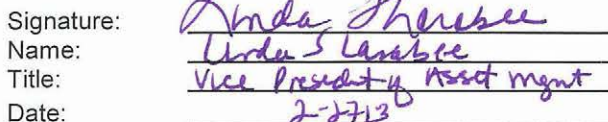 Signature: Linda
Name: Linda S Larabee
Title: Vice President of Asset Mgmt
Date: 2-27-13